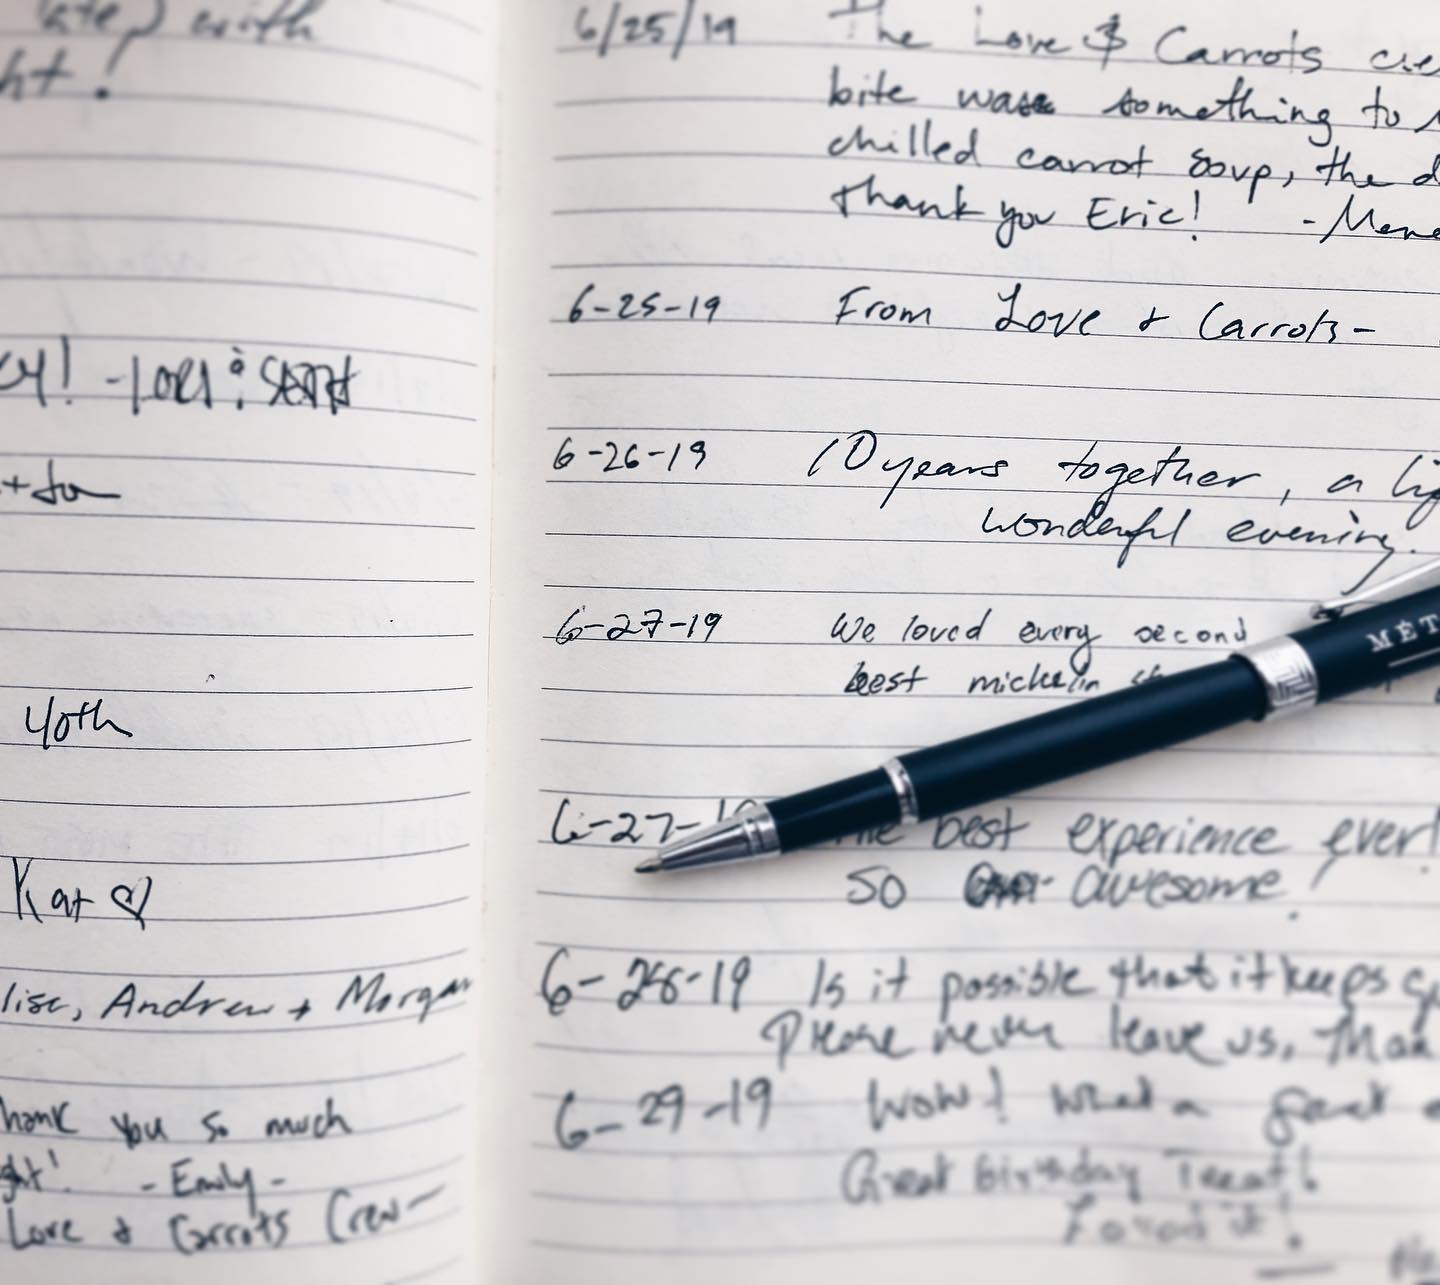 with
ht!
y! -LORI &
40th
Kat ♡
lise, Andrew + Morgan
hank you so much
ght! - Emily -
Love & Carrots Crew -
6/25/19 The Love & Carrots cre
bite was something to
chilled carrot soup, the d
thank you Eric! -
6-25-19 From Love & Carrots -
6-26-19 10 years together, a li
wonderful evening.
6-27-19 We loved every second
best michelin
MÉT
6-27-19 The best experience ever!
so awesome!
6-28-19 Is it possible that it keeps g
Please never leave us,
6-29-19 Wow! What a
Great Birthday Treat!
Loved it!